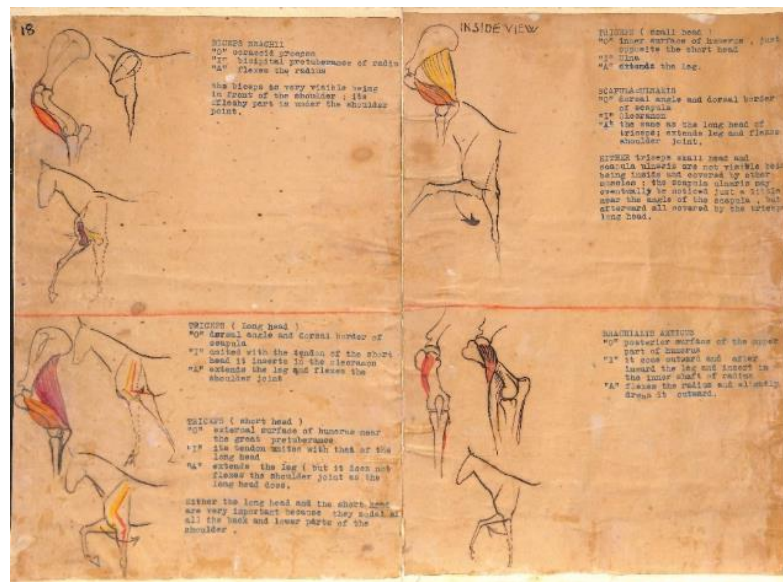 18
BICEPS BRACHII
"O" coracoid process
"I" bicipital protuberance of radiu
"A" flexes the radius
the biceps is very visible being
in front of the shoulder ; its
fleshy part is under the shoulder
point.
TRICEPS ( long head )
"O" dorsal angle and dorsal border of
scapula
"I" united with the tendon of the short
head it inserts in the olecranon
"A" extends the leg and flexes the
shoulder joint
TRICEPS ( short head )
"O" external surface of humerus near
the great protuberance
"I" its tendon unites with that of the
long head
"A" extends the leg ( but it does not
flexes the shoulder joint as the
long head does.
Either the long head and the short head
are very important because they model
all the back and lower parts of the
shoulder .
INSIDE VIEW
TRICEPS ( small head )
"O" inner surface of humerus , just
opposite the short head
"I" Ulna
"A" extends the leg.
SCAPULA-ULNARIS
"O" dorsal angle and dorsal border
of scapula
"I" Olecranon
"A" the same as the long head of
triceps; extends leg and flexes
shoulder joint.
EITHER triceps small head and
scapula ulnaris are not visible
being inside and covered by other
muscles ; the scapula ulnaris may
eventually be noticed just a little
near the angle of the scapula , but
afterward all covered by the triceps
long head.
BRACHIALIS ANTICUS
"O" posterior surface of the upper
part of humerus
"I" it goes outward and after
inward the leg and insert in
the inner shaft of radius
"A" flexes the radius and slightly
draws it outward.